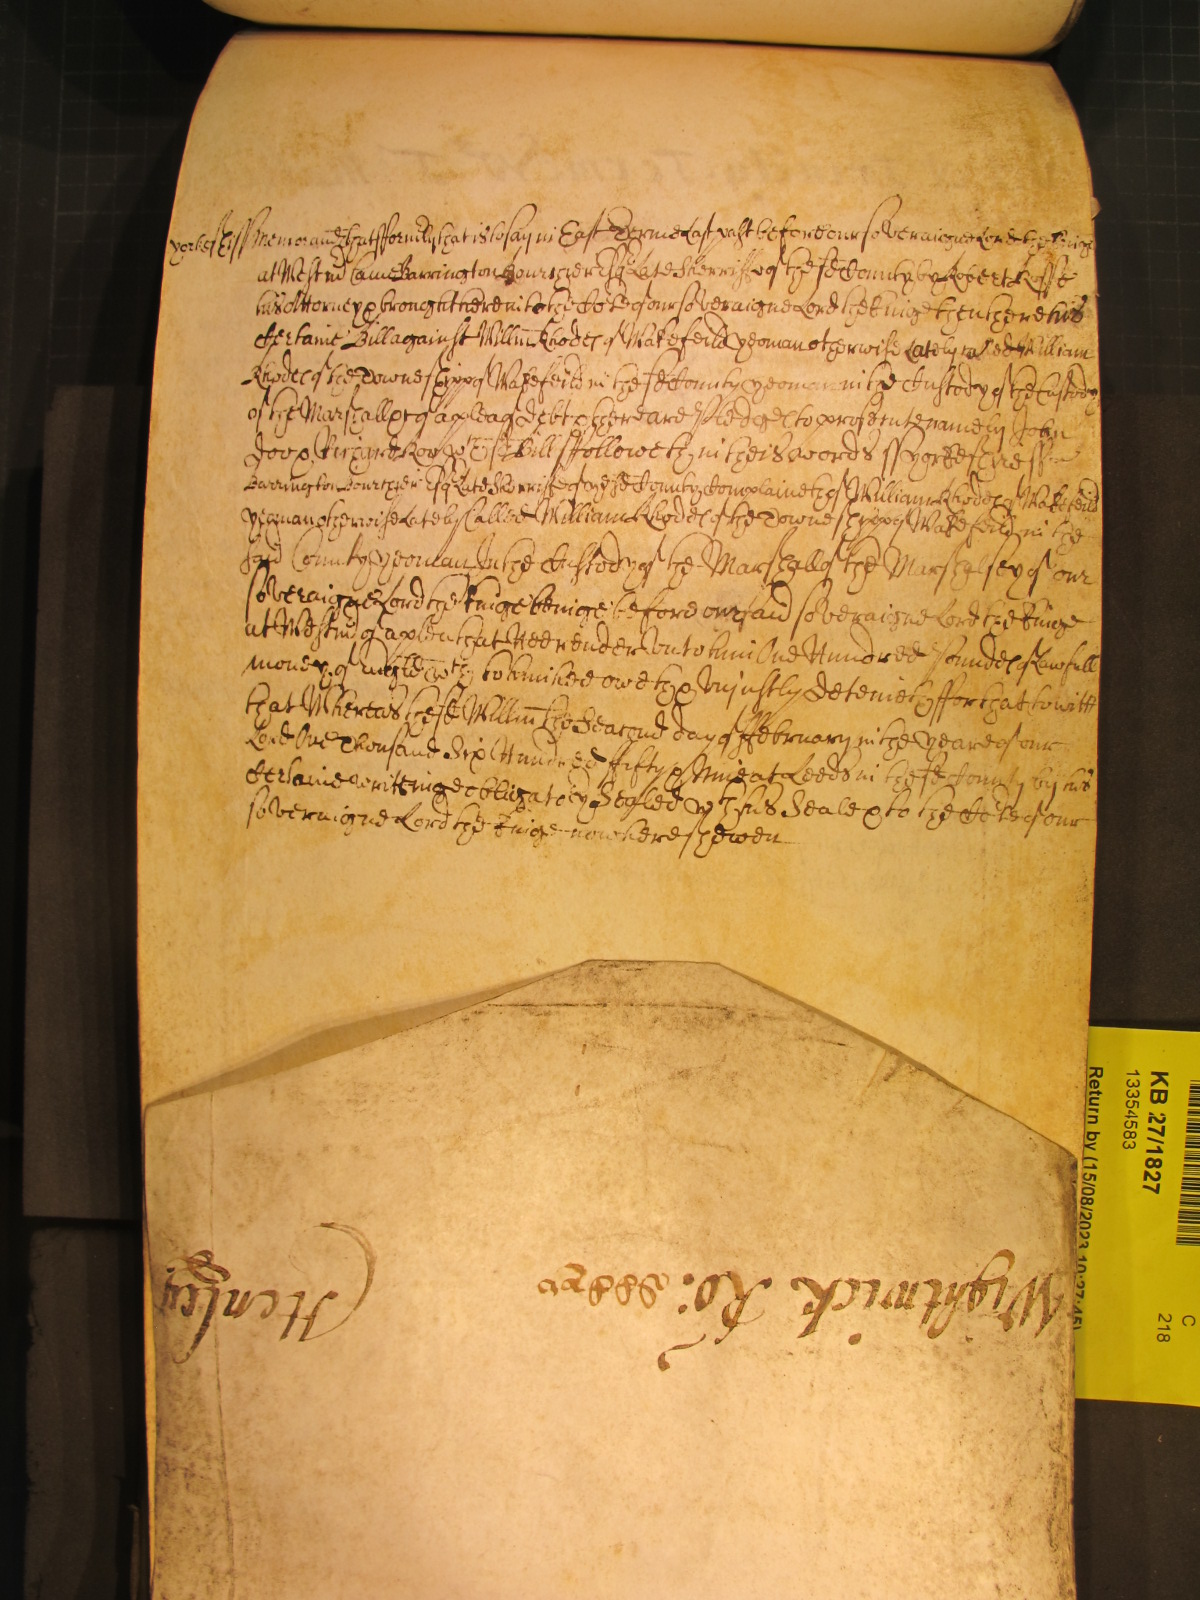 Yorkesh ss Memorand that fformerly that is to say in East Terme Last past before our soveraigne Lord the Kinge
at Westm Came Barrington Bourchier Esq Late Sherriffe of the sd County by Robert Rosse
his Attorney & brought here into the Cote of our soveraigne Lord the Kinge then there this
Certaine Bill against Willm Rhodes of Wakefeild yeoman otherwise Lately called William
Rhodes of the Towneshipp of Wakefeild in the sd County yeoman in the Custody of the Custody
of the Marshall &c of a plea of debt & there are Pledges to prosecute namely John
Doo & Richard Roo wch sd Bill ffolloweth in theis words ss Yorkeshire ss
Barrington Bourchier Esq Late Sherriffe of the sd County Complaineth of William Rhodes of Wakefeild
yeoman otherwise Lately Called William Rhodes of the Towneshipp of Wakefeild in the
said County yeoman In the Custody of the Marshall of the Marshalsey of our
soveraigne Lord the Kinge beinge before our said soveraigne Lord the Kinge
at Westm of a plea that Hee render unto him One Hundred Pounds of Lawfull
money of Engld wch to him hee oweth & unjustly deteineth ffor that to witt
that Whereas the sd Willm the Second day of ffebruary in the yeare of our
Lord One Thousand Six Hundred ffifty & Nine at Leeds in the sd County by his
Certaine writeinge obligatory Sealed wth his Seale & to the Cote of our
soveraigne Lord the Kinge now here shewen
Wightwick Ro:
Henley
KB 27/1827
13354583
Return by (15/08/2023 10:27:45)
C
218